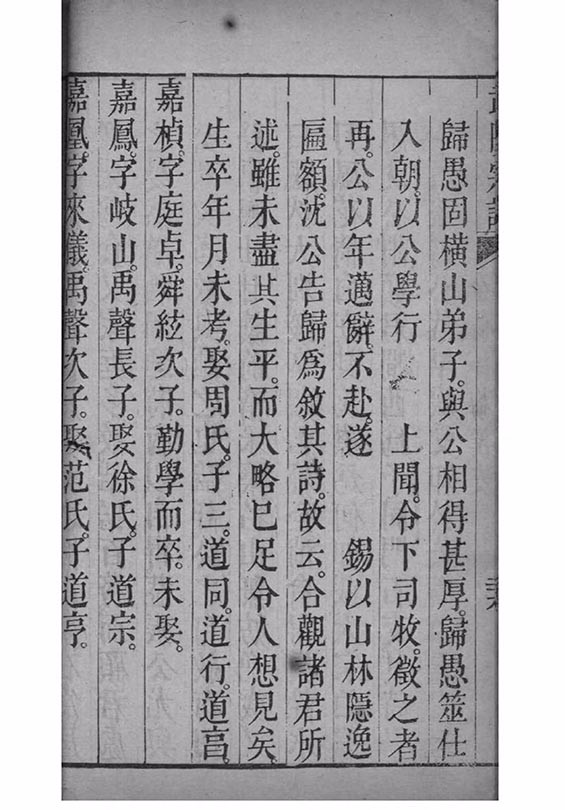 歸愚固橫山弟子。與公相得甚厚。歸愚筮仕
入朝。以公學行　上聞。令下司牧。徵之者
再。公以年邁辭。不赴。遂　錫以山林隱逸
匾額沈公告歸爲敘其詩。故云。合觀諸君所
述。雖未盡其生平。而大略已足令人想見矣。
生卒年月未考。娶周氏。子三。道同。道行。道亯。
嘉楨。字庭卓。舜絃次子。勤學而卒。未娶。
嘉鳳。字岐山。禹聲長子。娶徐氏。子道宗。
嘉凰。字來儀。禹聲次子。娶范氏。子道亨。